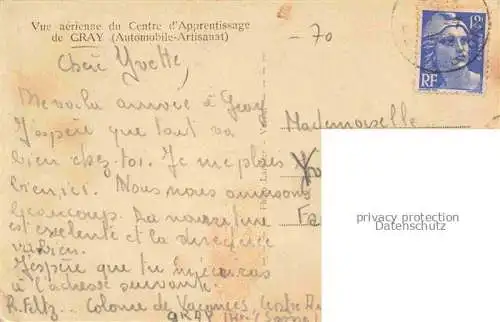 Vue aérienne du Centre d'Apprentissage
de GRAY (Automobile-Artisanat)
-70
12F
RF
Chère Yvette,
Me voila arrivée à Gray
J'espère que tout va
bien chez-toi. Je me plais
bien ici. Nous nous amusons
beaucoup. La nourriture
est exelente et la directrice
J'espère que tu
à l'adresse suivante.
R. Feltz.. Colonie de Vacances, Centre
GRAY
Mademoiselle
privacy protection
Datenschutz